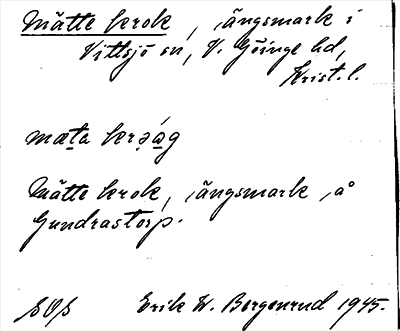 Mätte krok, ängsmark i
Vittsjö sn, V. Göinge hd,
Krist. l.
Mätte krok, ängsmark å
Gundrastorp.
SOS Erik W. Bergenrud 1945.